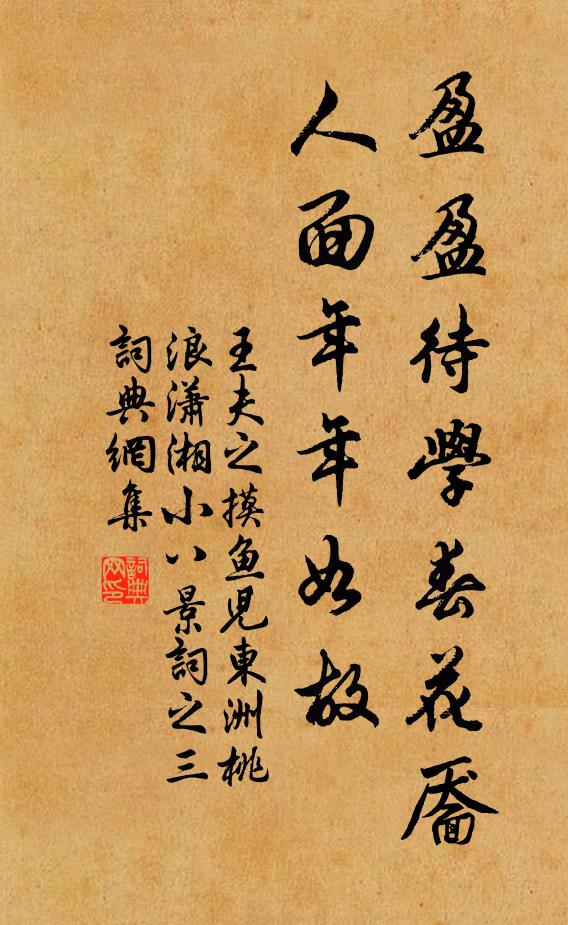 盈盈待學春花靨
人面年年如故
王夫之摸鱼兒東洲桃
浪瀟湘小八景詞之三
詞典網集
詞典网印